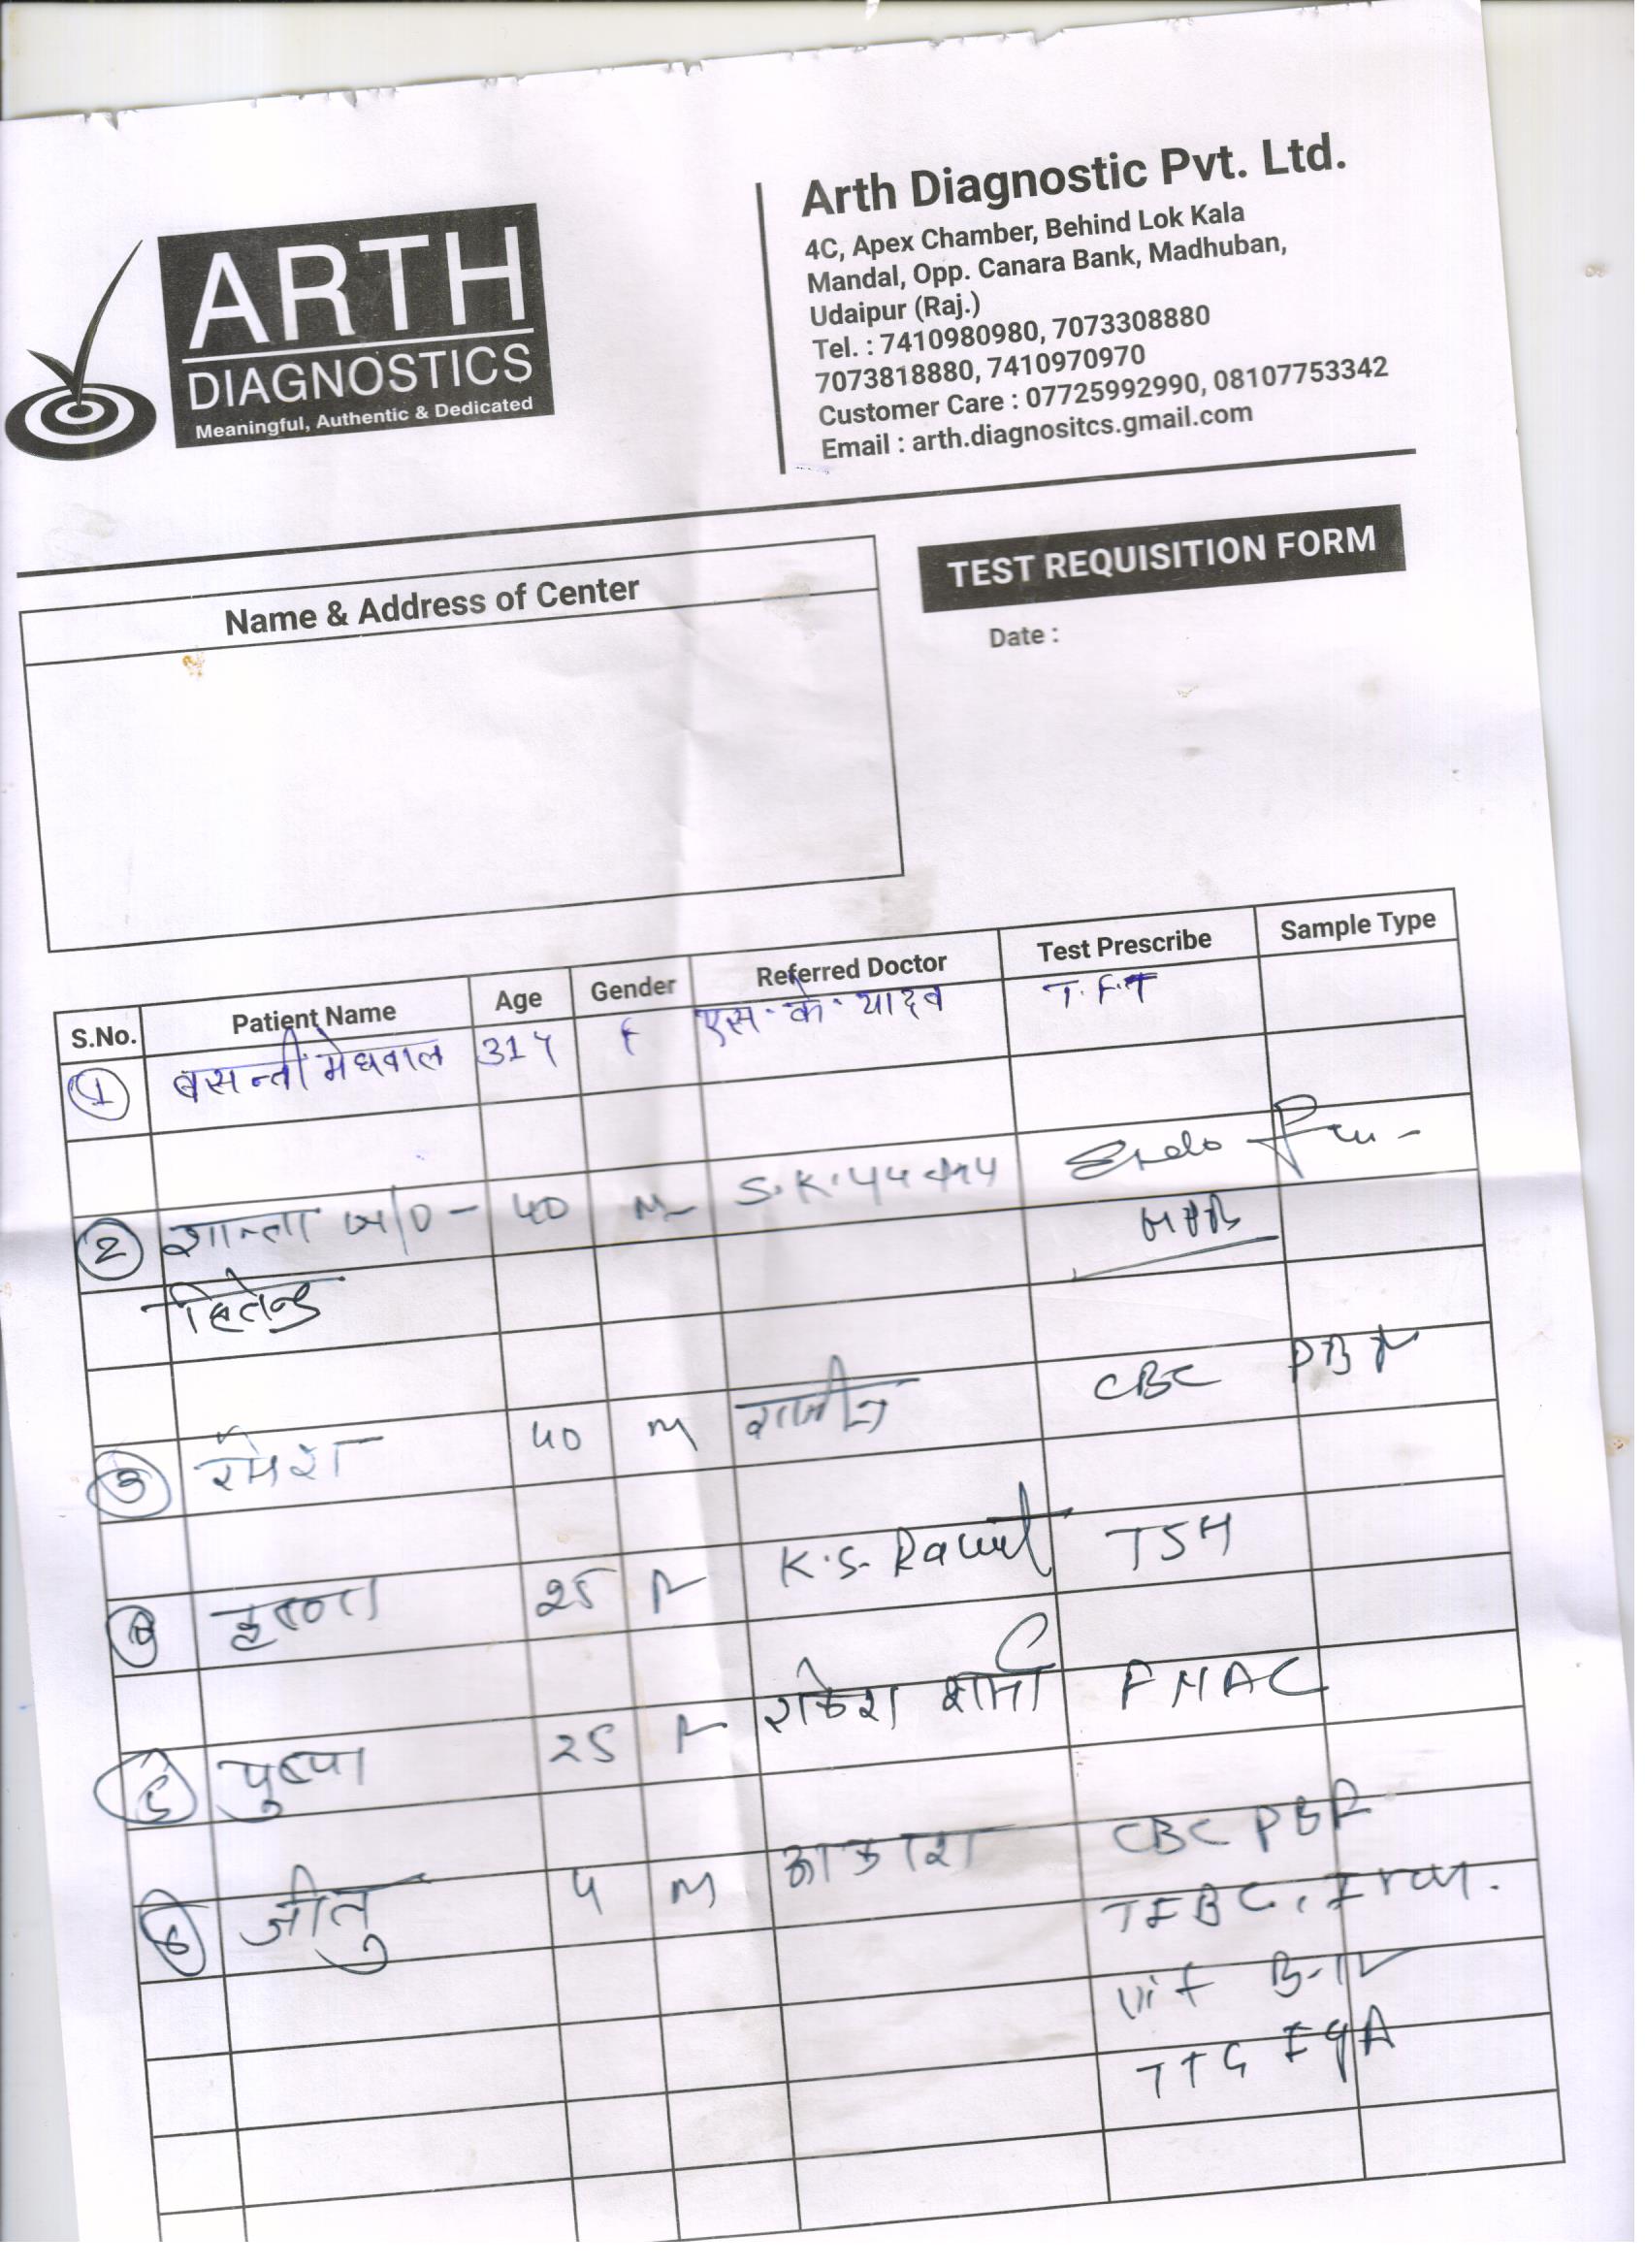 ARTH
DIAGNOSTICS
Meaningful, Authentic & Dedicated
Arth Diagnostic Pvt. Ltd.
4C, Apex Chamber, Behind Lok Kala
Mandal, Opp. Canara Bank, Madhuban,
Udaipur (Raj.)
Tel. : 7410980980, 7073308880
7073818880, 7410970970
Customer Care : 07725992990, 08107753342
Email : arth.diagnositcs.gmail.com
Name & Address of Center
TEST REQUISITION FORM
Date :
S.No. Patient Name Age Gender Referred Doctor Test Prescribe Sample Type
1 बसन्ती मेघवाल 31Y F एस. के. यादव T.F.T
2 शान्ता W/O - 40 M S.K. Endo
HPR
3 रमेश 40 M CBC PBF
कृष्णा 25 F K.S. Rawat TSH
पुष्पा 25 F राकेश शर्मा FNAC
6 जीतु 4 M आकाश CBC PBF
TIBC, Iron.
Vit B-12
TTG IgA